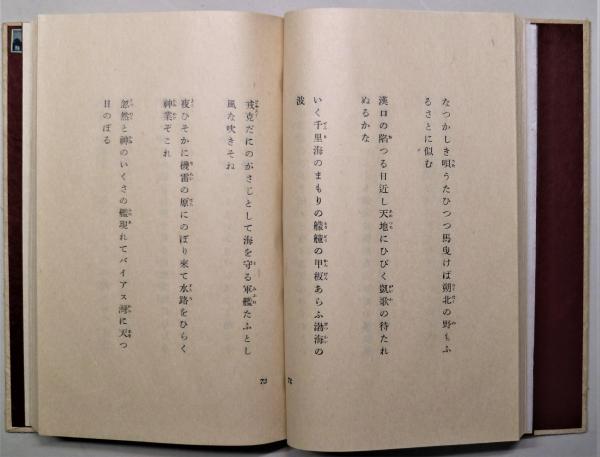 なつかしき唄うたひつつ馬曳けば朔北の野もふ
るさとに似む
漢口の陥つる日近し天地にひびく凱歌の待たれ
ぬるかな
いく千里海のまもりの艨艟の甲板あらふ渤海の
波
72
戎克だにのがさじとして海を守る軍艦たふとし
風な吹きそね
夜ひそかに機雷の原にのぼり来て水路をひらく
神業ぞこれ
忽然と神のいくさの艦現れてバイアス湾に天つ
日のぼる
73